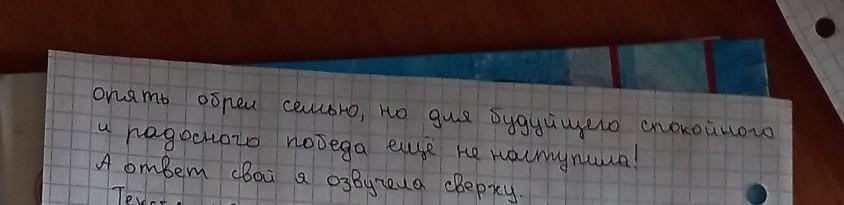 опять обрел семью, но для будуйщего спокойного
и радосного победа ещё не наступила!
А ответ свой я озвучела сверху.
Текст